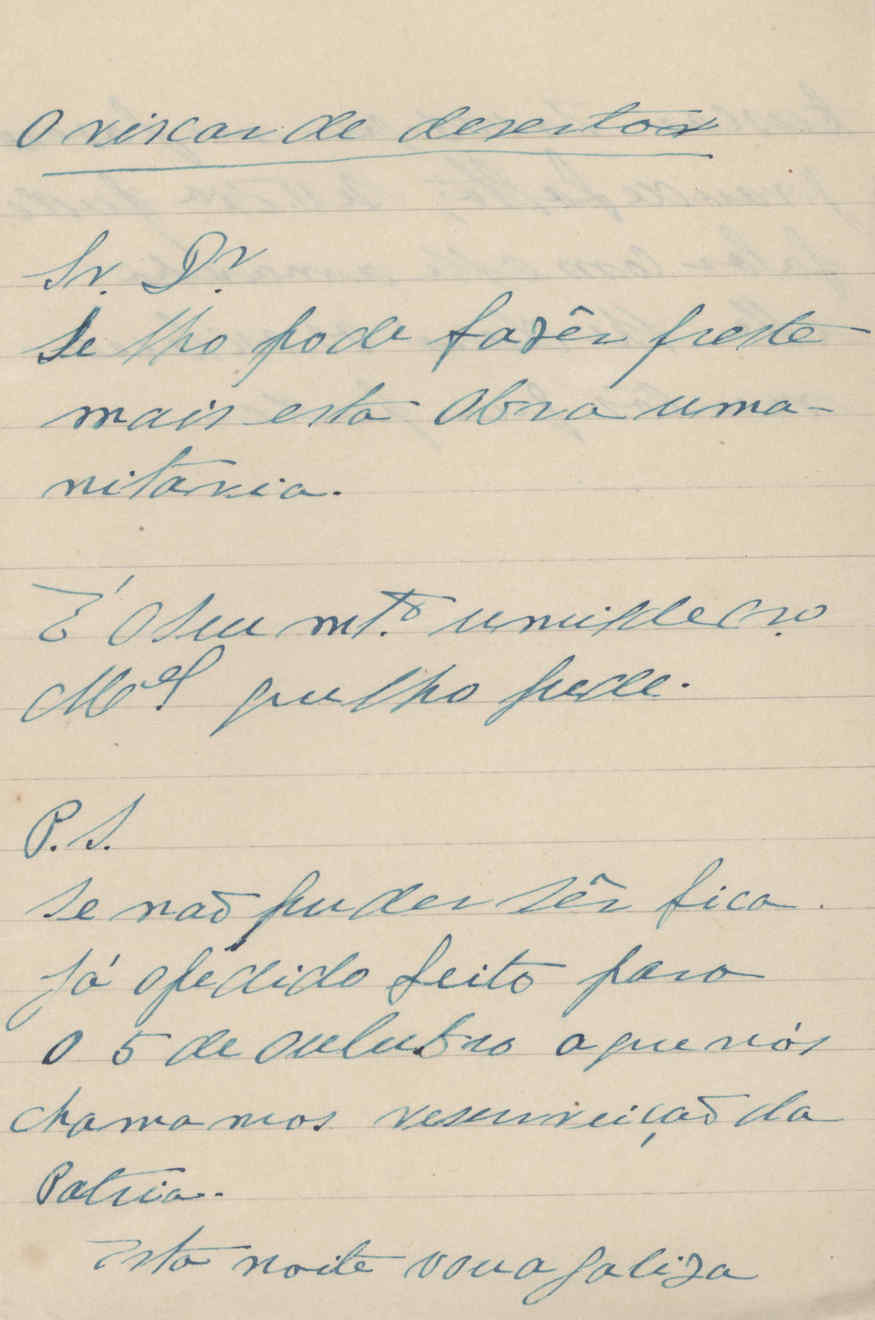 O riscar de desertor
Sr. Dr.
Se lho pode fazêr preste
mais esta obra uma-
nitaria.
É o seu mt.º umilde cr.º
M.el que lho pede.
P. S.
Se naõ puder sêr fica
já o pedido feito para
o 5 de outubro a que nós
chamamos resurreiçaõ da
Patria.
Esta noite vou a Galiza